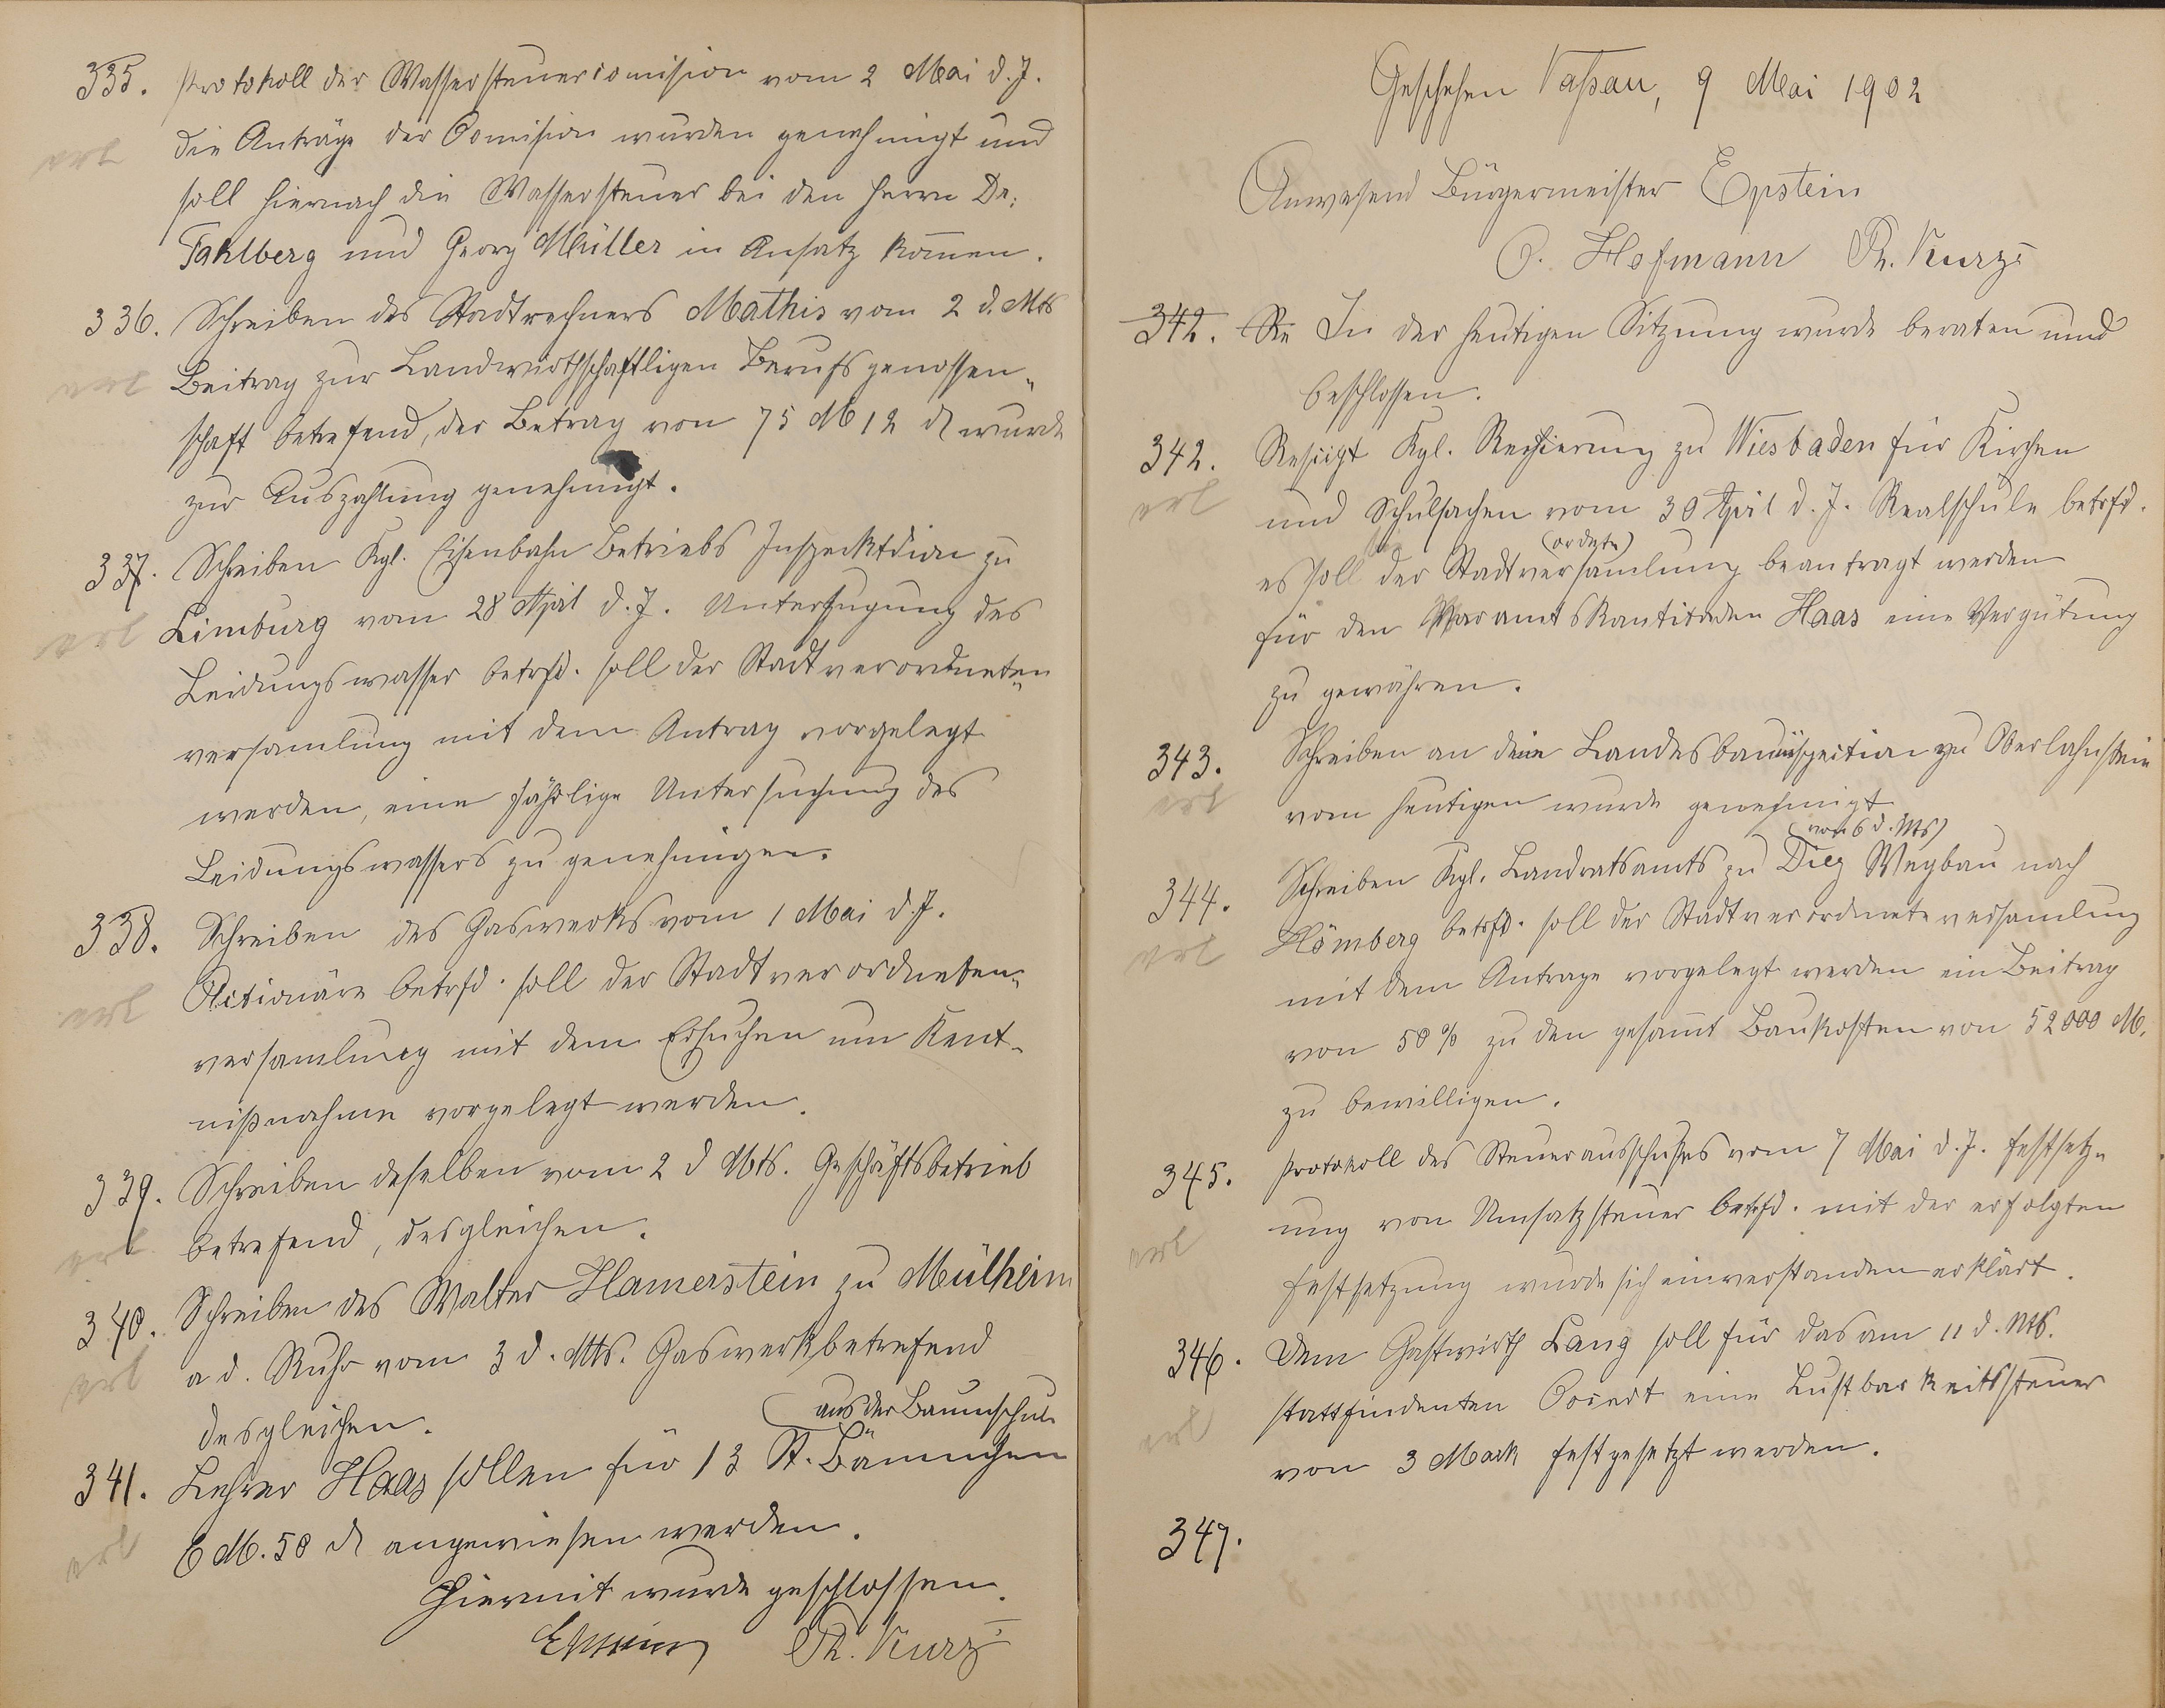 335. Protokoll der Wassersteuercomission vom 2 Mai d. J.
erl die Anträge der Comission wurden genehmigt und
soll hiernach die Wassersteuer bei den Herrn Dr:
Fahlberg und Georg Müller in Ansatz kom̄en.
336. Schreiben des Stadtrechners Mathis vom 2 d. Mts
erl Beitrag zur Landwirthschaftligen Berufsgenossen„
schaft betrefend, der Betrag von 75 M 12 ₰ wurde
zur Auszahlung genehmigt.
337. Schreiben Kgl. Eisenbahn Betriebs Inspecktdion zu
erl Limburg vom 28 April d. J. Untersugung des
Leidungswasser betrfd. soll der Stadtverordneten„
versamlung mit dem Antrag vorgelegt
werden, eine jährlige Untersuchung des
Leidungswassers zu genehmigen.
338. Schreiben des Gaswerks vom 1 Mai d. J.
erl Actionäre betrfd. soll der Stadtverordneten„
versamlung mit dem Ersuchen um Kent„
nißnahme vorgelegt werden.
339. Schreiben deselben vom 2 d Mts. Geschäftsbetrieb
erl betrefend, desgleichen.
340. Schreiben des Walter Hamerstein zu Mülheim
erl a d. Ruhr vom 3 d. Mts. Gaswerk betrefend
desgleichen.
(aus der Baumschule
341. Lehrer Haas sollen für 13 St. Bäumchen
erl 6 M. 50 ₰ angewiesen werden.
Hiermit wurde geschlossen.
Epstein Ph. Kurz
Geschehen Naßau, 9 Mai 1902
Anwesend Bürgermeister Epstein
C. Hofmann Ph. Kurz
342. Re In der heutigen Sitzung wurde beraten und
beschlossen.
342. Rescipt Kgl. Regierung zu Wiesbaden für Kirchen
erl und Schulsachen vom 30 April d. J. Realschule betrfd.
(ordete)
es soll der Stadtversamlung beantragt werden
für den Pfaramtskantitaden Haas eine Vergütung
zu gewähren.
343. Schreiben an die Landesbauinspection zu Oberlahnstein
erl vom heutigen wurde genehmigt
(vom 6 d. Mts)
344. Schreiben Kgl. Landratsamts zu Diez Wegbau nach
erl Hömberg betrfd. soll der Stadtverordneteversamlung
mit dem Antrage vorgelegt werden ein Beitrag
von 50 % zu den gesam̄t Baukosten von 52000 M.
zu bewilligen.
345. Protokoll des Steuerausschußes vom 7 Mai d. J. Festsetz„
erl ung von Umsatzsteuer betrfd. mit der erfolgten
Festsetzung wurde sich einverstanden erklärt.
346. Dem Gastwirth Lang soll für das am 11 d. Mts.
erl stattfindenten Concert eine Lustbarkeitssteuer
von 3 Mark festgesetzt werden.
347.